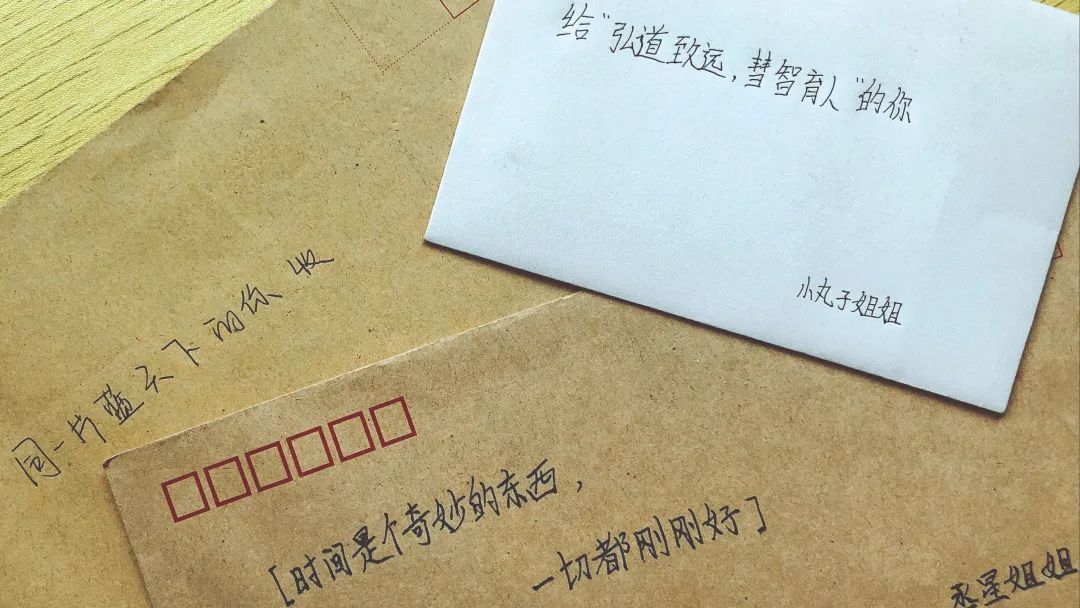 给"弘道致远,彗智育人"的你
小丸子姐姐
同一片蓝天下的你 收
[时间是个奇妙的东西,
一切都刚刚好]
丞星姐姐